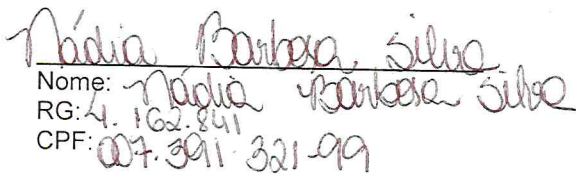 Nádia Barbosa Silva
Nome: Nádia Barbosa Silva
RG: 4.162.841
CPF: 007.391.321-99